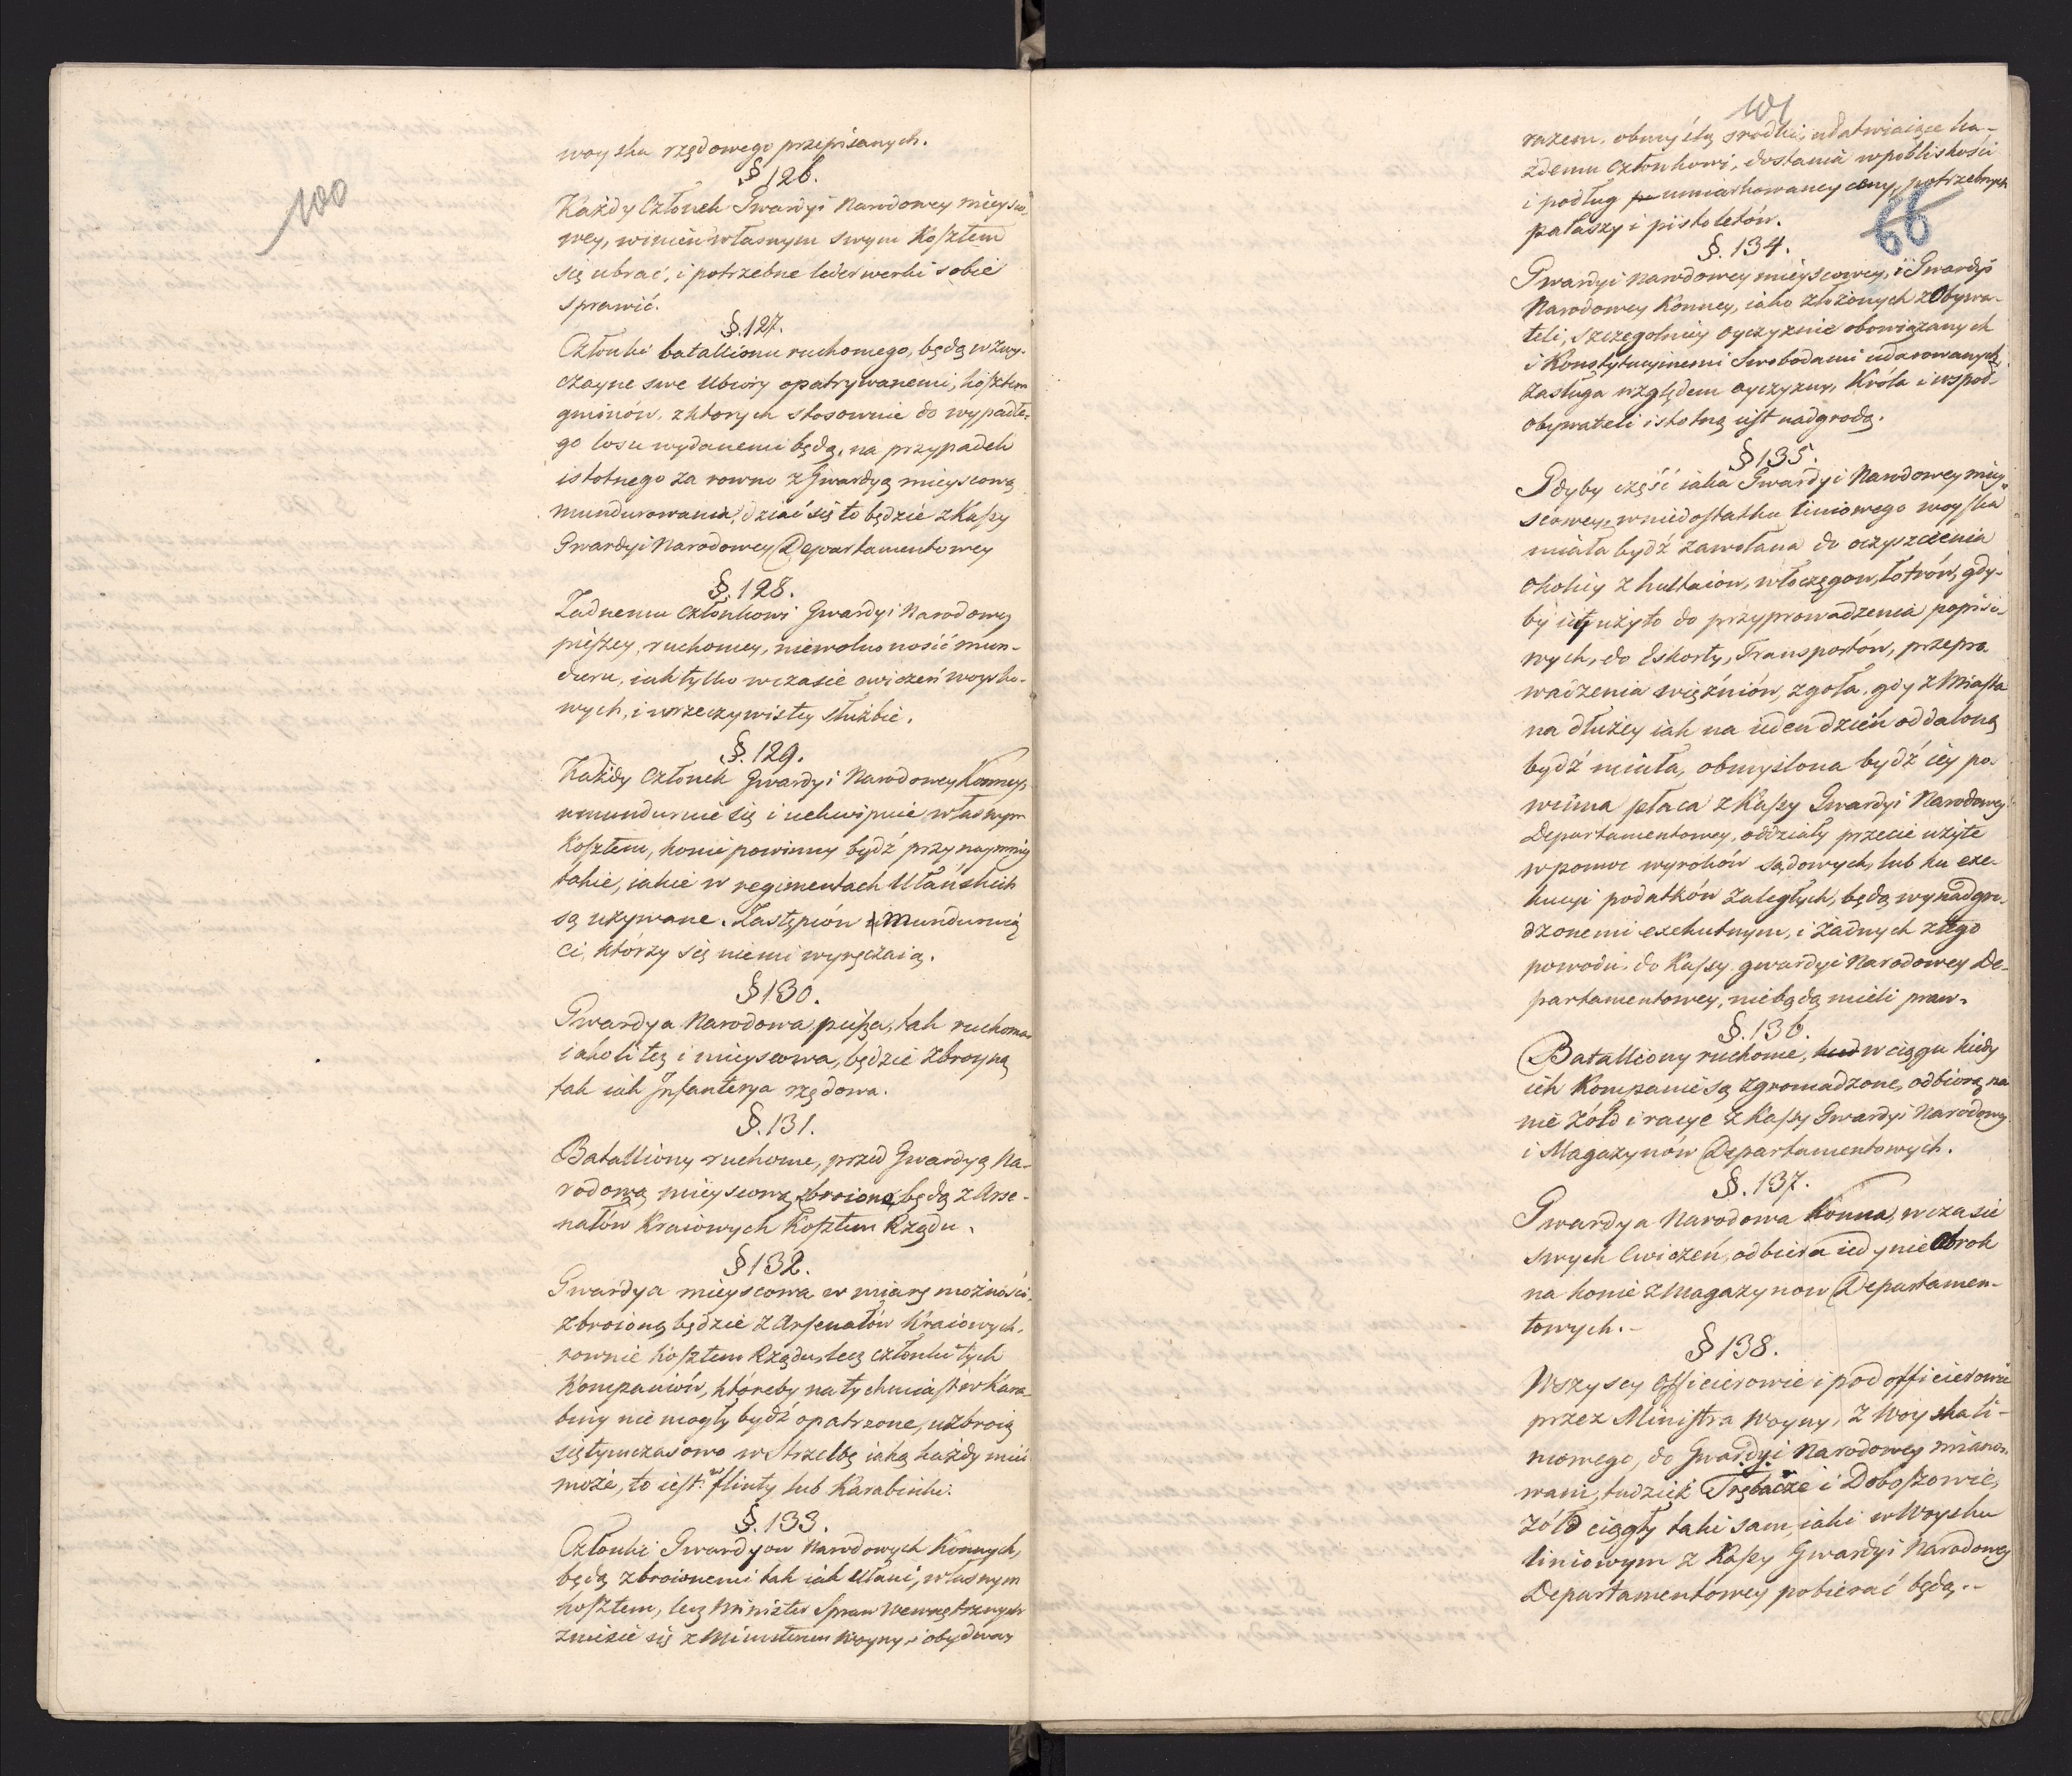 100
woyska rządowego przepisanych.
§ 126.
Każdy Członek Gwardyi Narodowey mieysco-
wey, winien własnym swym Kosztem
się ubrać, i potrzebne lederwerki sobie
sprawić.
§. 127.
Członki batallionu ruchomego, będą w zwy-
czayne swe Ubiory opatrywanemi, kosztem
gminów, z których stosownie do wypadłe-
go losu wydanemi będą, na przypadek
istotnego za rowno z Gwardyą mieyscową
mundurowania, dziać się to będzie z Kassy
Gwardyi Narodowey Departamentowey
§. 128.
Żadnemu członkowi Gwardyi Narodowey
pieszey, ruchomey, niewolno nosić mun-
duru, iak tylko w czasie cwiczeń woysko-
wych, i w rzeczywistey służbie.
§. 129.
Każdy Członek Gwardyi Narodowey Konney,
umunduruie się i uekwipuie własnym
Kosztem, konie powinny bydź przynaymniey
takie, iakie w regimentach Ułańskich
są używane. Zastępców umunduruią
Ci, którzy się niemi wyręczaią.
§ 130.
Gwardya Narodowa piesza, tak ruchoma
iako li też i mieyscowa, będzie zbroyną
tak iak Infanterya rządowa.
§. 131.
Batalliony ruchome, przed Gwardyą Na-
rodową mieyscową zbroione będą z Arse-
nałów Kraiowych Kosztem Rządu.
§ 132.
Gwardya mieyscowa w miarę możności,
zbroioną będzie z Arsenałów Kraiowych,
rownie kosztem Rządu, lecz członki tych
Kompaniów, któreby natychmiast w Kara-
biny nie mogły bydź opatrzone, uzbroią
się tymczasowo w strzelbę iaką każdy mieć
może, to iest: w flinty lub Karabinki.
§. 133.
Członki Gwardyow Narodowych Konnych,
będą zbroionemi tak iak Ułani, własnym
kosztem, lecz Minister Spraw Wewnętrznych
zniesie się z Ministrem Woyny, i obydway
101
razem, obmyślą srodki, ułatwiaiące ka-
żdemu Członkowi, dostania w pobliskości
i podług umiarkowaney ceny, potrzebnych
pałaszy i pistoletów.
66
§. 134.
Gwardyi Narodowey mieyscowey, i Gwardyi
Narodowey Konney, iako złożonych z Obywa-
teli, szczegolniey oyczyznie obowiązanych
i Konstytucyinemi Swobodami udarowanych,
zasługa względem oyczyzny, Króla i wspoł-
obywateli istotną iest nadgrodą.
§ 135.
Gdyby część iaka Gwardyi Narodowey miey-
scowey, w niedostatku liniowego woyska
miała bydź zawołana do oczyszczenia
okolicy z hultaiow, włoczęgow, łotrów, gdy-
by iey użyto do przyprowadzenia popiso-
wych, do Eskorty, Transportów, przepro-
wadzenia więźniów, zgoła, gdy z Miasta
na dłużey iak na ieden dzień oddaloną
bydź miała, obmyślona bydź iey po-
winna płaca z Kassy Gwardyi Narodowey
Departamentowey, oddziały przecie użyte
w pomoc wyroków sądowych, lub ku exe-
kucyi podatków zaległych, będą wynadgro-
dzonemi exekutnym, i żadnych z tego
powodu, do Kassy gwardyi Narodowey De-
partamentowey, niebędą mieli praw.
§. 136.
Batalliony ruchome, w ciągu kiedy
ich Kompanie są zgromadzone, odbiorą na
nie żołd i racye z Kassy Gwardyi Narodowey
i Magazynów Departamentowych.
§. 137.
Gwardya Narodowa Konna, w czasie
swych Cwiczeń, odbiera iedynie Obrok
na konie z Magazynow Departamen-
towych.-
§ 138.
Wszyscy Officierowie i podofficierowie
przez Ministra Woyny, z Woyska li-
niowego, do Gwardyi Narodowey miano-
wani, tudzież Trębacze i Doboszowie,
żołd ciągły taki sam, iaki w Woysku
liniowym z Kassy Gwardyi Narodowey
Departamentowey pobierać będą.-